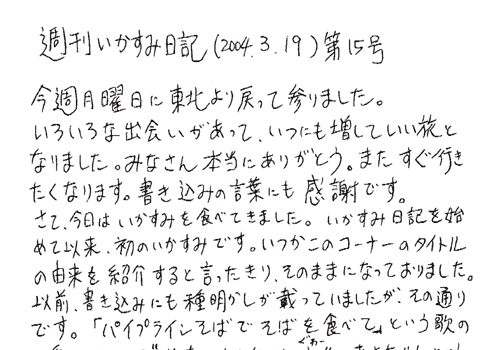 週刊いかすみ日記(2004.3.19)第15号
今週月曜日に東北より戻って参りました。
いろいろな出会いがあって、いつにも増していい旅と
なりました。みなさん本当にありがとう。またすぐ行き
たくなります。書き込みの言葉にも感謝です。
さて、今日はいかすみを食べてきました。いかすみ日記を始
めて以来、初のいかすみです。いつかこのコーナーのタイトル
の由来を紹介すると言ったきり、そのままになっておりました。
以前、書き込みにも種明かしが載っていましたが、その通り
です。「パイプラインそばでそばを食べて」という歌の